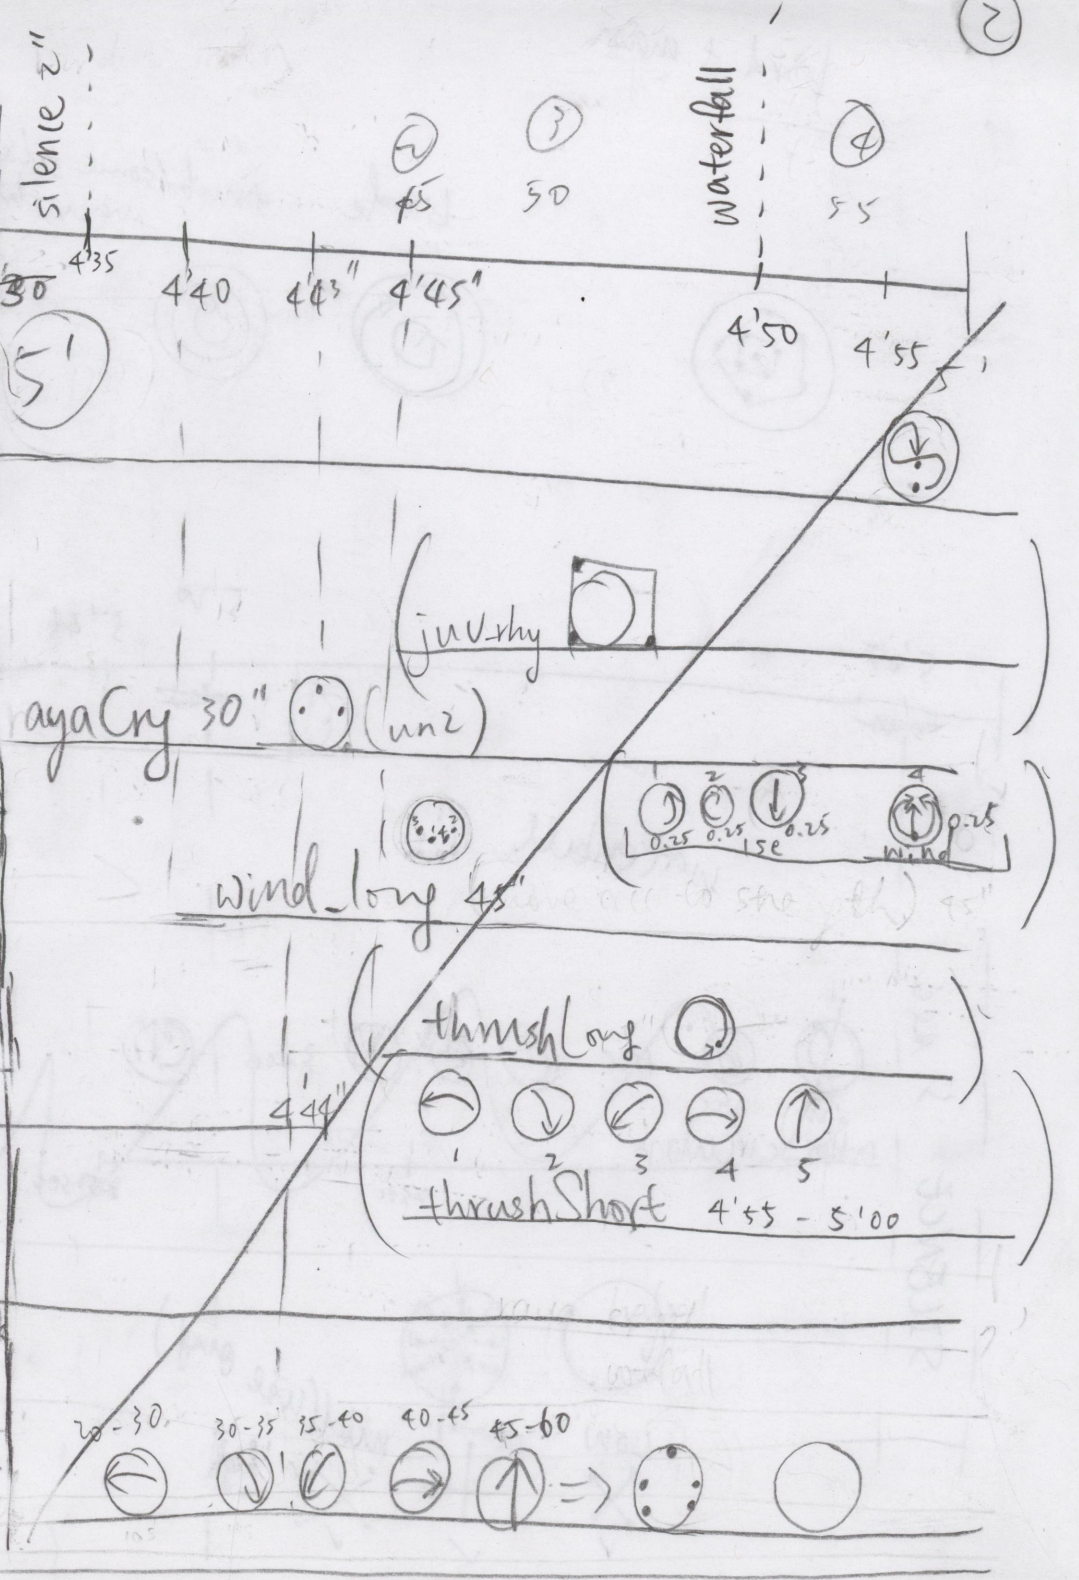 2
silence 2"
waterfall
2 3 4
45 50 55
30 4'35 4'40 4'43" 4'45" 4'50 4'55 5'
5'
juv_rhy
ayaCry 30" (un2)
1 2 3 4
0.25 0.25 0.25 0.25
wind
wind_long 45"
thrushLong
4'44"
1 2 3 4 5
thrushShort 4'55 - 5'00
20-30 30-35 35-40 40-45 45-60
=>